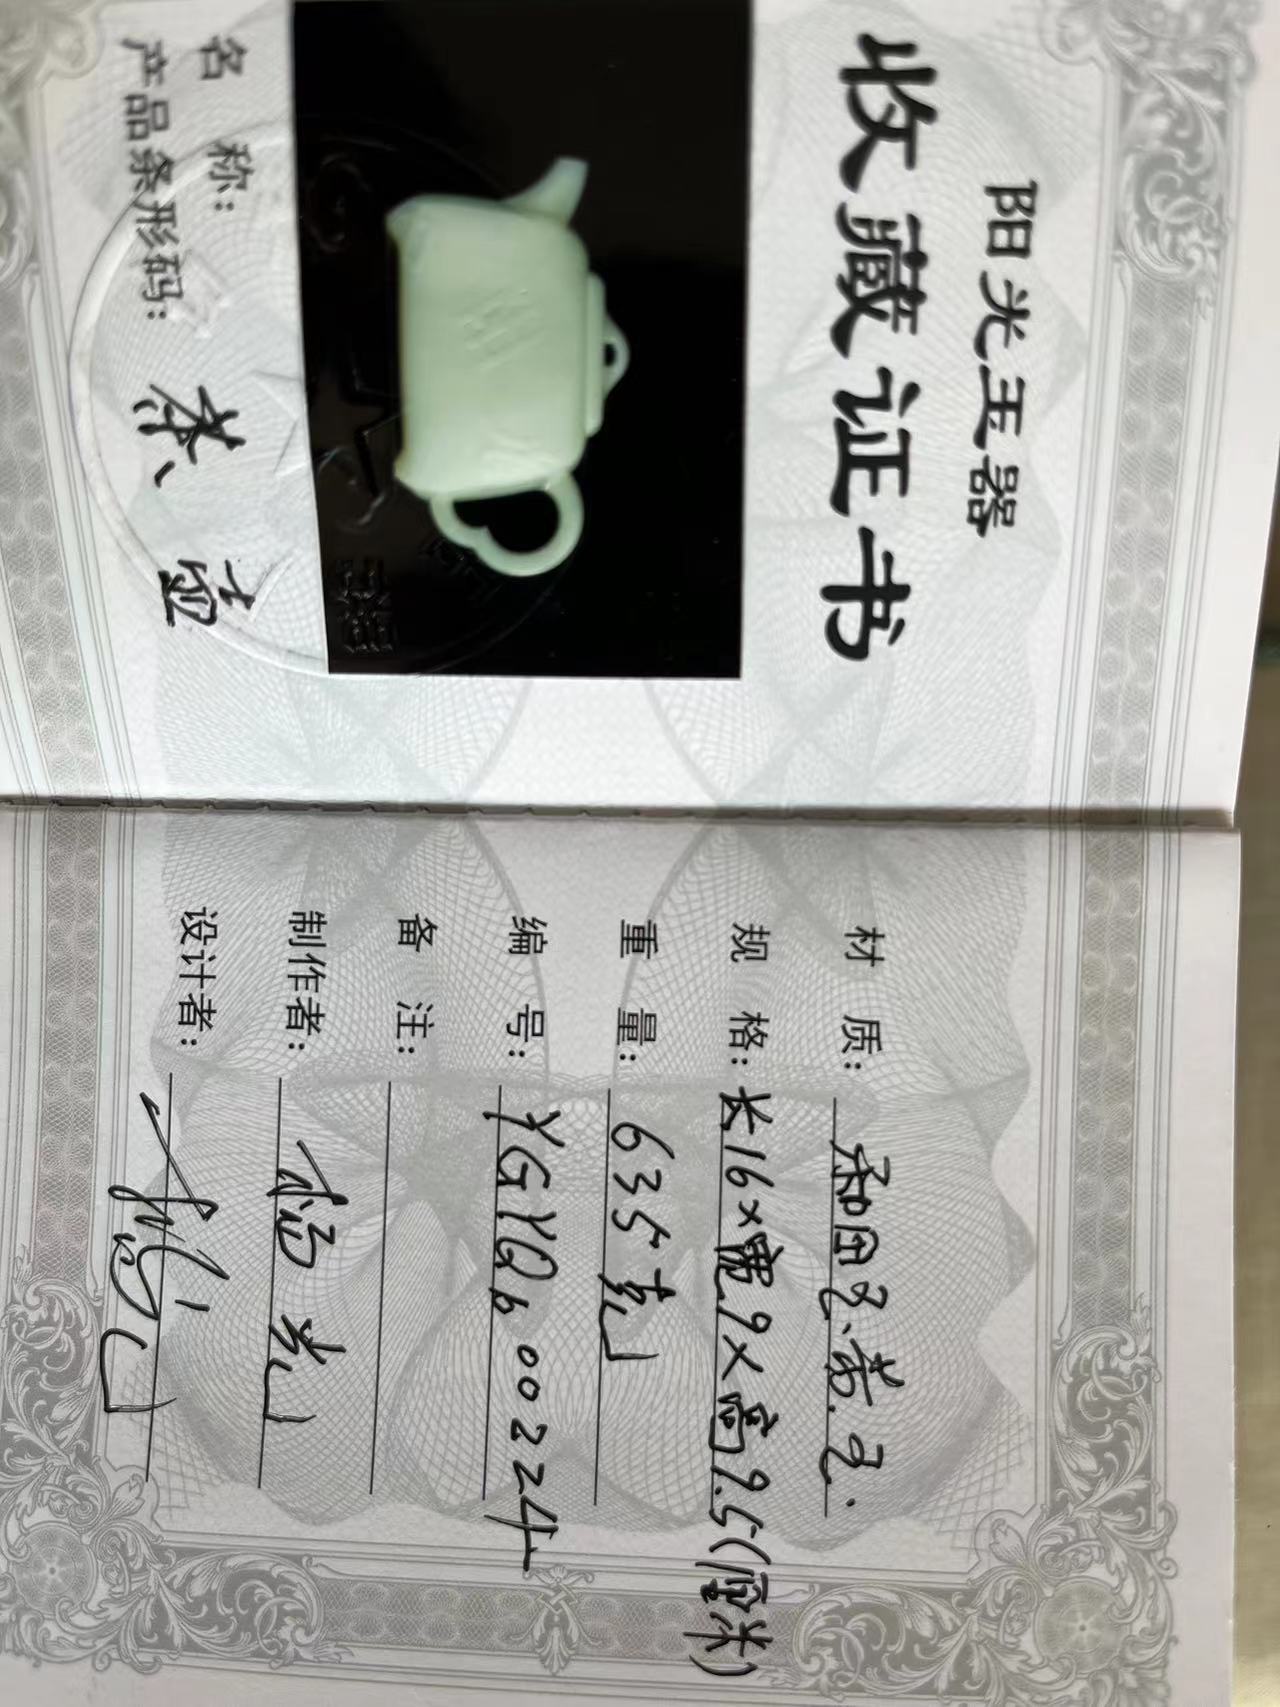 阳光玉器
收藏证书
名 称：茶壶
产品条形码：
材 质：和田玉.黄.玉.
规 格：长16×宽9×高9.5(厘米)
重 量：635克
编 号：YGYQb00224
备 注：
制作者：杨光
设计者：